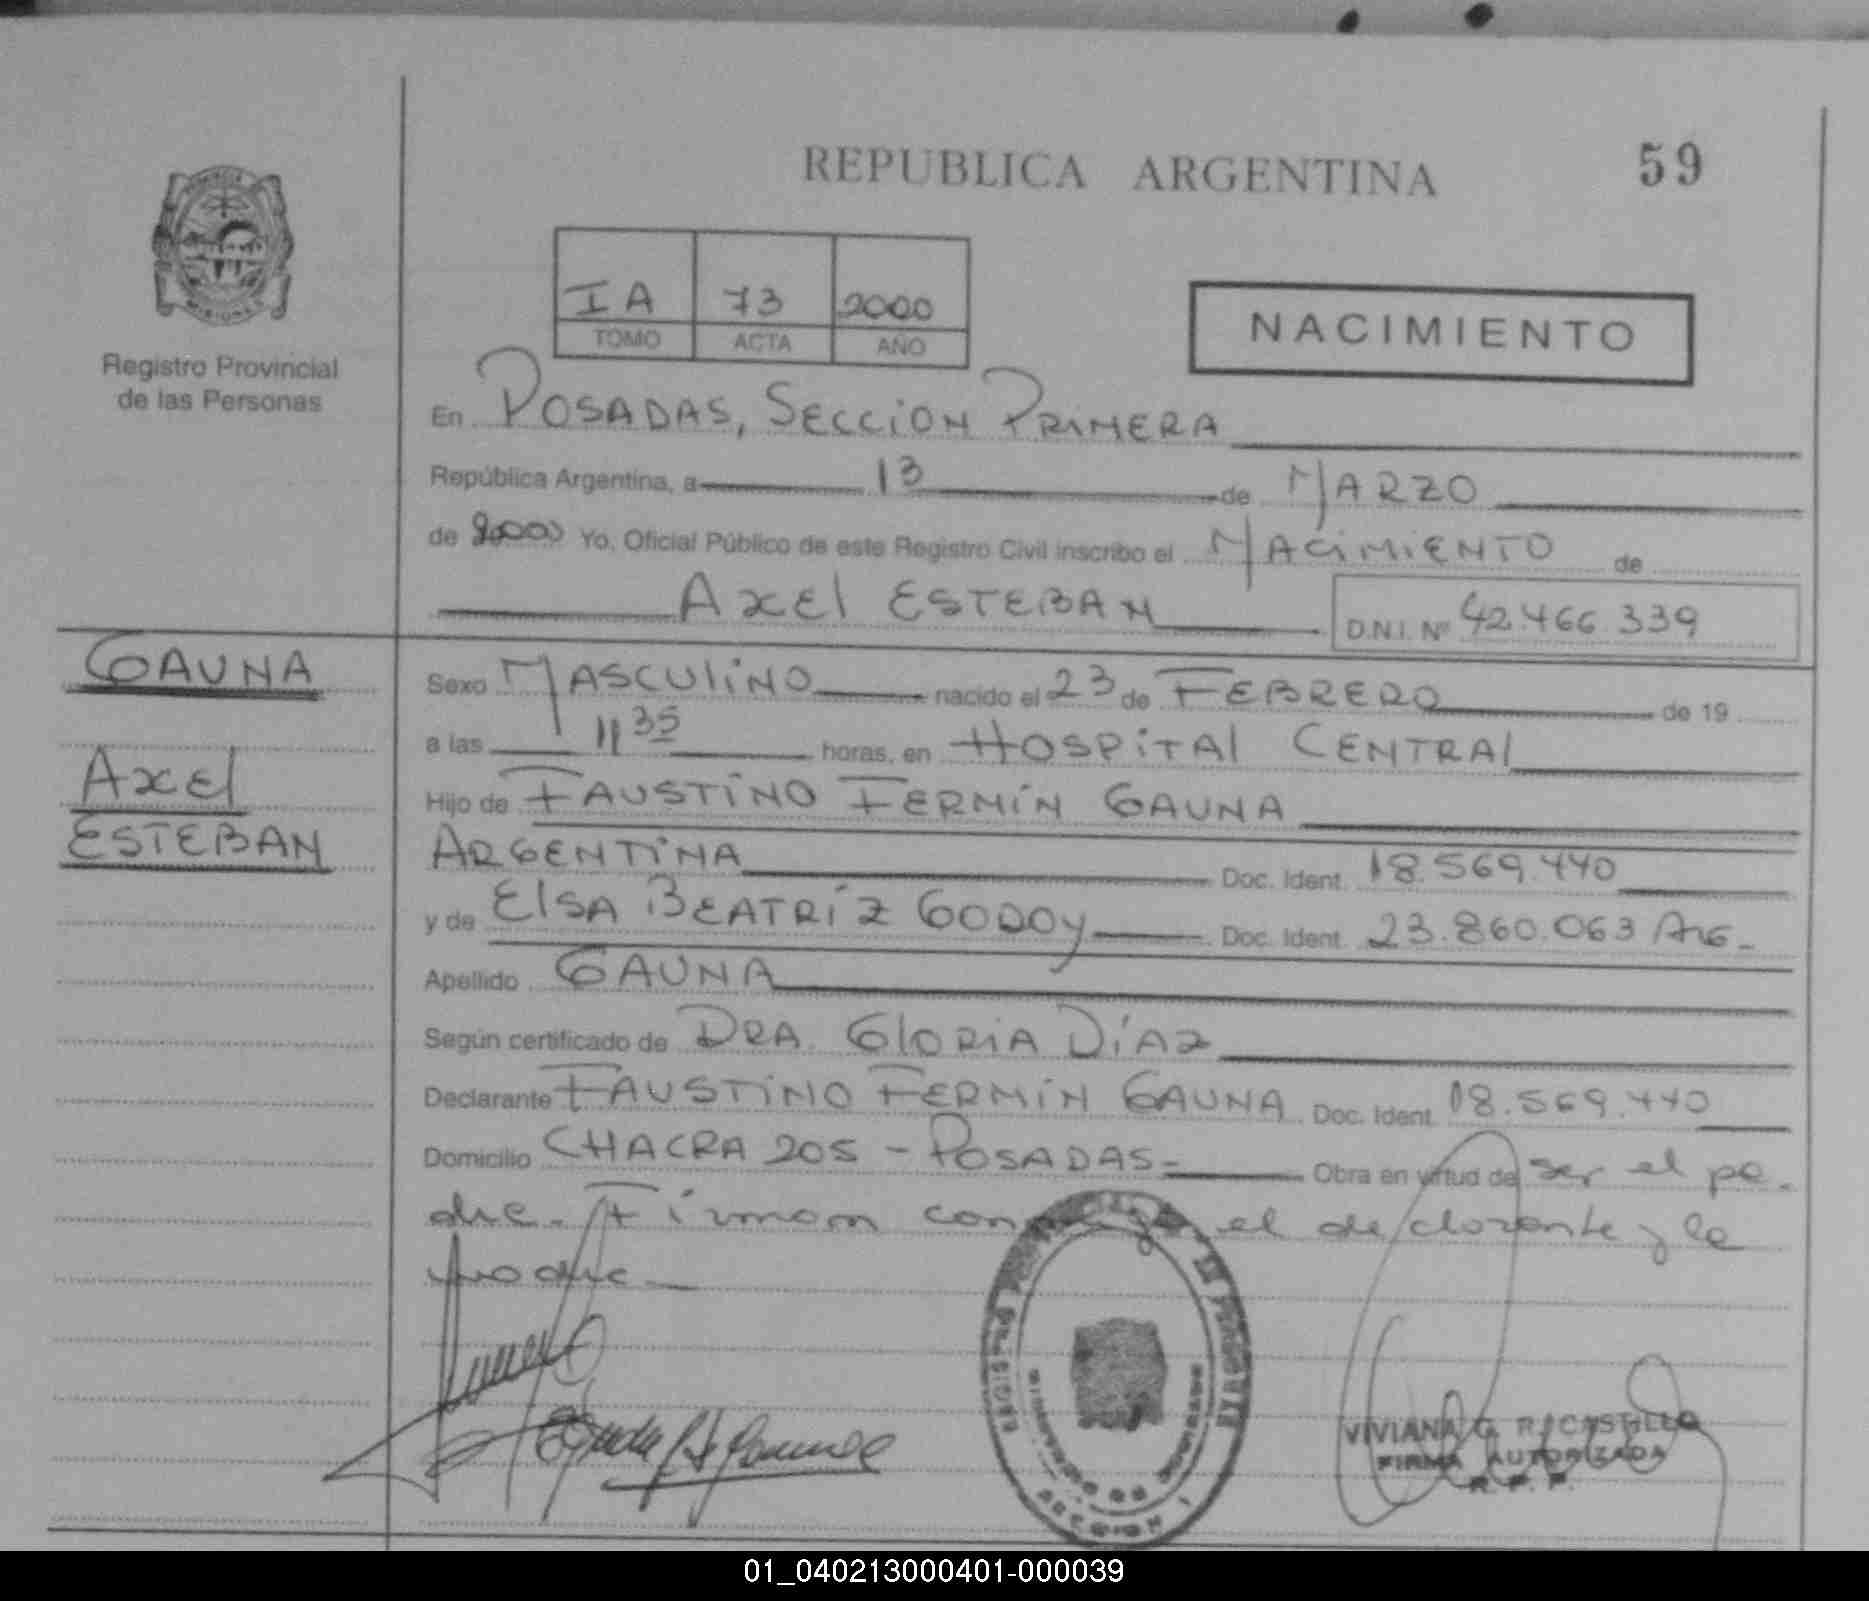 REPUBLICA ARGENTINA
59
IA 73 2000
TOMO ACTA AÑO
NACIMIENTO
MISIONES
Registro Provincial
de las Personas
En POSADAS, SECCION PRIMERA
República Argentina, a 13 de MARZO
de 2000 Yo, Oficial Público de este Registro Civil inscribo el NACIMIENTO de
AXEL ESTEBAN
D.N.I. Nº 42.466.339
GAUNA
AXEL
ESTEBAN
Sexo MASCULINO nacido el 23 de FEBRERO de 19
a las 11 35 horas, en HOSPITAL CENTRAL
Hijo de FAUSTINO FERMÍN GAUNA
ARGENTINA Doc. Ident. 18.569.440
y de ELSA BEATRÍZ GODOY Doc. Ident. 23.860.063 ARG-
Apellido GAUNA
Según certificado de DRA. GLORIA DÍAZ
Declarante FAUSTINO FERMÍN GAUNA Doc. Ident. 18.569.440
Domicilio CHACRA 205 - POSADAS- Obra en virtud de ser el pa-
dre. Firman conmigo el declarante y la
madre-
VIVIANA G. R. CASTILLO
FIRMA AUTORIZADA
R. P. P.
01_040213000401-000039